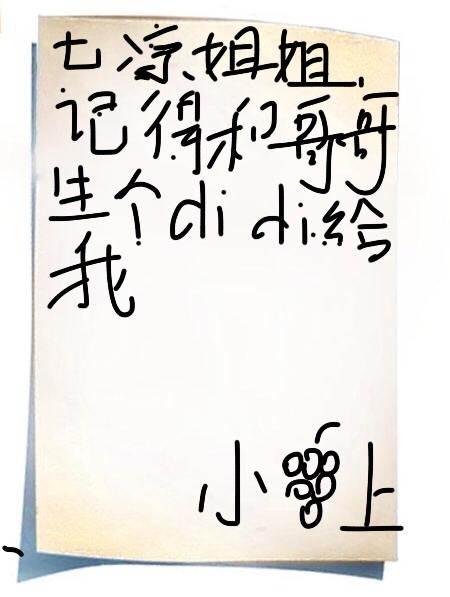 七凉姐姐,
记得和哥哥
生个didi给
我
小上